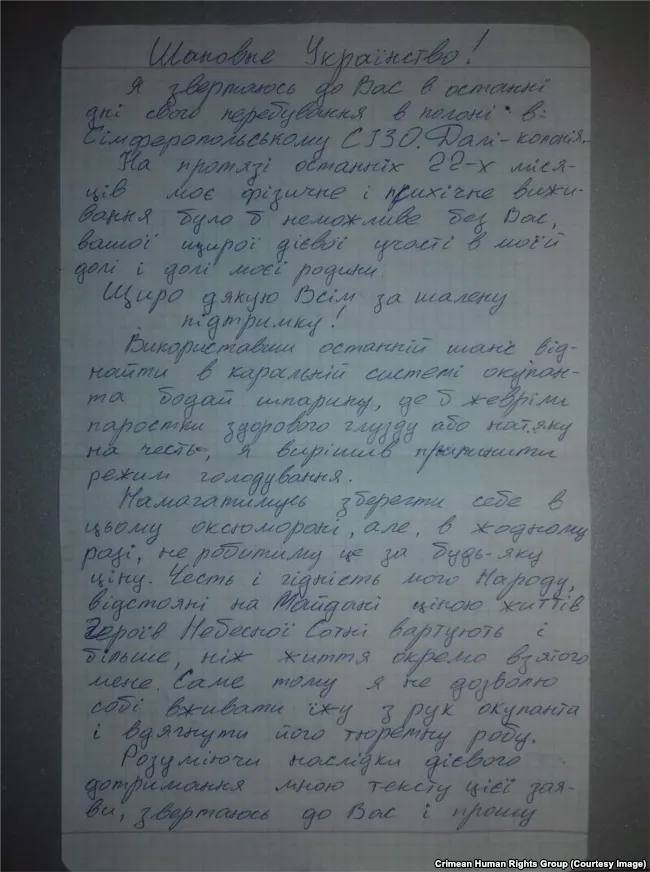 Шановне Українство!
Я звертаюсь до Вас в останні
дні свого перебування в полоні в
Сімферопольському СІЗО. Далі - колонія.
На протязі останніх 22-х міся-
ців моє фізичне і психічне вижи-
вання було б неможливе без Вас,
вашої щирої дієвої участі в моїй
долі і долі моєї родини.
Щиро дякую Всім за шалену
підтримку!
Використавши останній шанс від-
найти в каральній системі окупан-
та бодай шпарину, де б жевріли
паростки здорового глузду або натяку
на честь, я вирішив припинити
режим голодування.
Намагатимусь зберегти себе в
цьому оксюмороні, але, в жодному
разі, не робитиму це за будь-яку
ціну. Честь і гідність мого Народу,
відстояні на Майдані ціною життів
Героїв Небесної Сотні вартують і
більше, ніж життя окремо взятого
мене. Саме тому я не дозволю
собі вживати їжу з рук окупанта
і вдягнути його тюремну робу.
Розуміючи наслідки дієвого
дотримання мною тексту цієї зая-
ви, звертаюсь до Вас і прошу
Crimean Human Rights Group (Courtesy Image)